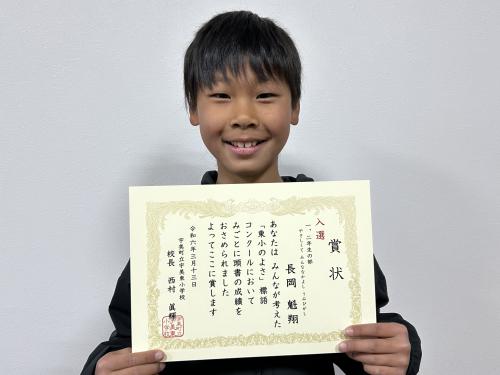 賞状
入選
一、二年生の部
やさしくて みんななかよし うみひがし
長岡 魁翔
あなたは みんなが考えた
「東小のよさ」標語
コンクールにおいて
みごとに頭書の成績を
おさめられました
よってここに賞します
令和六年三月十三日
宇美町立宇美東小学校
校長 西村 眞輝